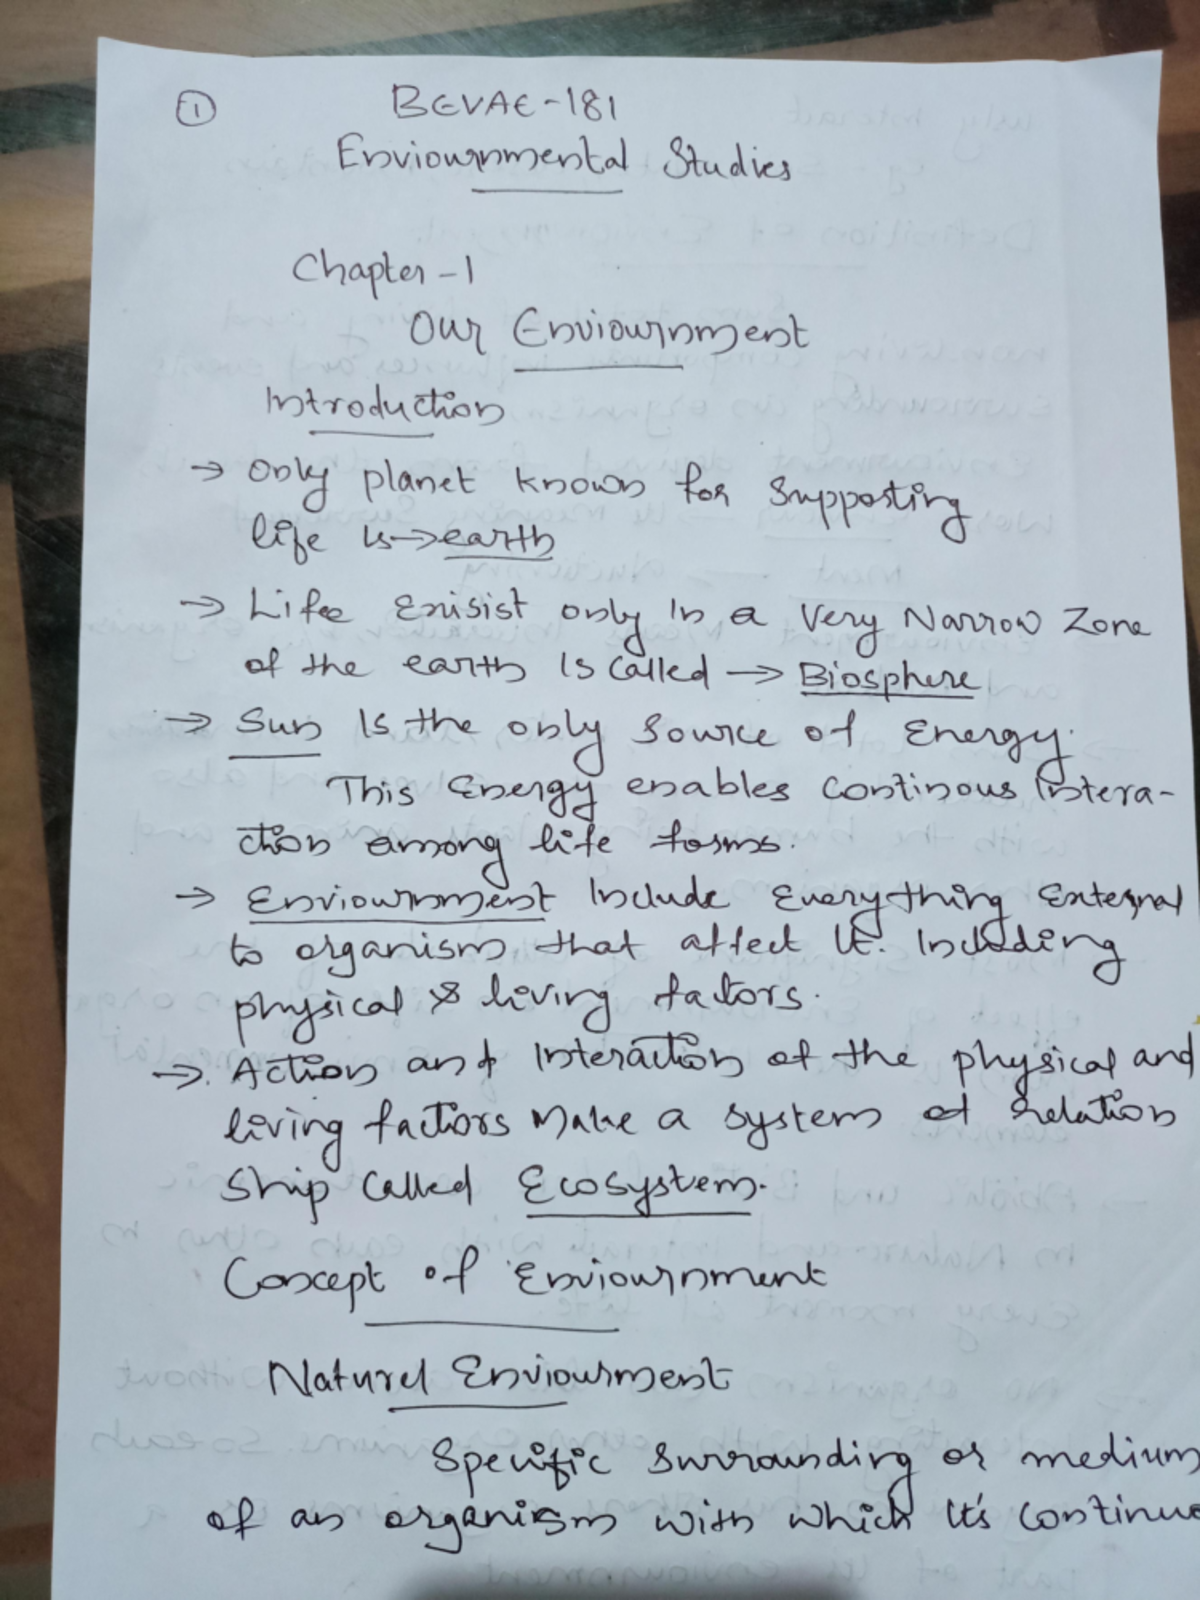 1
BEVAE-181
Enviournmental Studies
Chapter-1
Our Enviournment
Introduction
→ Only planet known for supposting
life is→earth
→ Life Exisist only in a Very Narrow Zone
of the earth is called → Biosphere
→ Sun is the only source of Energy.
This Energy enables continous Intera-
ction among life forms.
→ Enviournment Include Everything External
to organism that affect it. Including
physical & living factors.
→ Action and Interaction of the physical and
living factiors make a system of relation
ship called Ecosystem.
Concept of Enviournment
Naturel Enviourment
Specific Surrounding or medium
of an organism with which it's continue